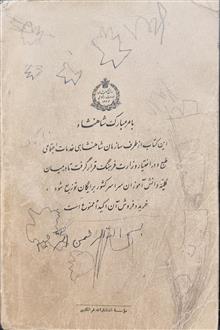 بامر مبارک شاهنشاه
این کتاب از طرف سازمان شاهنشاهی خدمات اجتماعی
طبع و در اختیار وزارت فرهنگ قرار گرفت تا در میان
کلیه دانش آموزان سراسر کشور برایگان توزیع شود
خرید و فروش آن اکیداً ممنوع است
بسم الله الرحمن
مؤسسه انتشارات فرانکلین